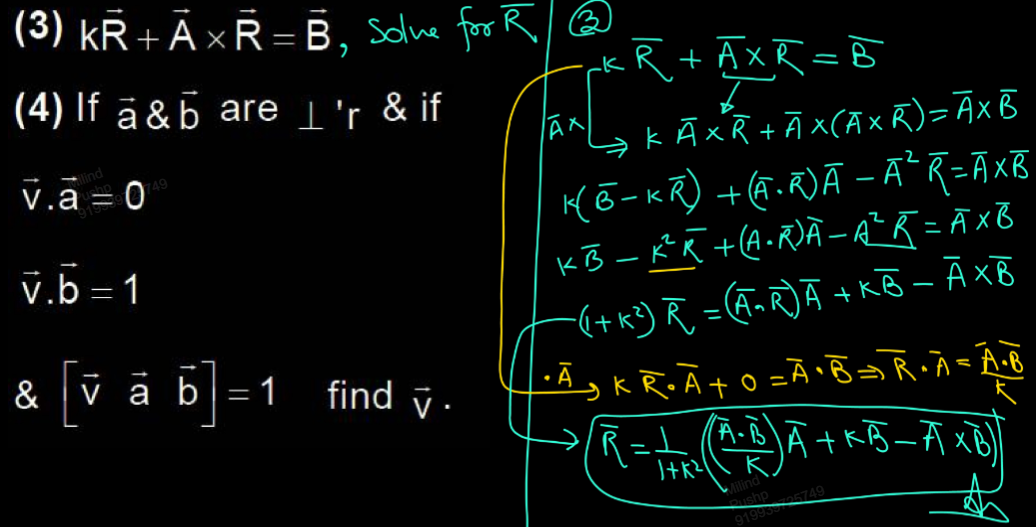 (3) kR⃗ + A⃗ × R⃗ = B⃗, Solve for R̅
(4) If a⃗ & b⃗ are ⊥'r & if
v⃗.a⃗ = 0
v⃗.b⃗ = 1
& [v⃗ a⃗ b⃗] = 1 find v⃗.
③
K R̅ + A̅ × R̅ = B̅
A̅× ⇒ K A̅ × R̅ + A̅ × (A̅ × R̅) = A̅ × B̅
K(B̅ − K R̅) + (A̅ · R̅) A̅ − A̅² R̅ = A̅ × B̅
K B̅ − K² R̅ + (A · R̅) A̅ − A² R̅ = A̅ × B̅
(1 + K²) R̅ = (A̅ · R̅) A̅ + K B̅ − A̅ × B̅
· A̅ → K R̅ · A̅ + 0 = A̅ · B̅ ⇒ R̅ · A̅ = (A̅ · B̅)/K
→ R̅ = 1/(1+K²) (((A̅ · B̅)/K) A̅ + K B̅ − A̅ × B̅)
Milind
Pushp